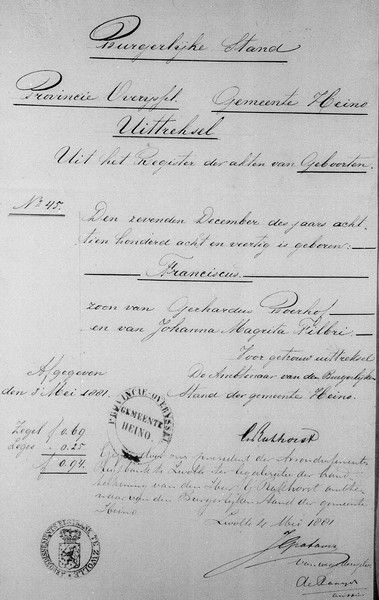 Burgerlijke Stand
Provincie Overijssel. Gemeente Heino
Uittreksel
Uit het Register der akten van Geboorten.
No 45. Den zevenden December des jaars acht-
tien honderd acht en veertig is geboren:
Franciscus.
zoon van Gerhardus Boerhof
en van Johanna Magrita Filbri.
Voor getrouw uittreksel
Afgegeven De Ambtenaar van den Burgerlijken
den 3 Mei 1881. Stand der gemeente Heino.
PROVINCIE OVERYSSEL
GEMEENTE
HEINO.
Zegel f 0.69
Leges " 0.25
f 0.94
door den president der Arrondissements
Regtbank te Zwolle ter legalisatie der hand
teekening van den Heer Rukhorst ambte
naar van den Burgerlijken Stand der gemeente
Heino
Zwolle 4 Mei 1881
TE ZWOLLE